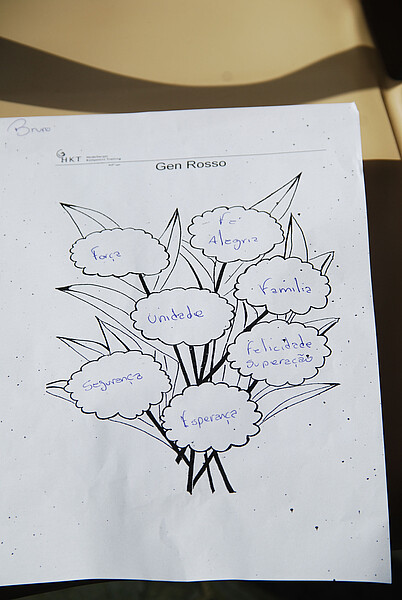 Bruno
HKT
Gen Rosso
Fé
Alegria
Força
Família
Unidade
Felicidade
superação
Segurança
Esperança